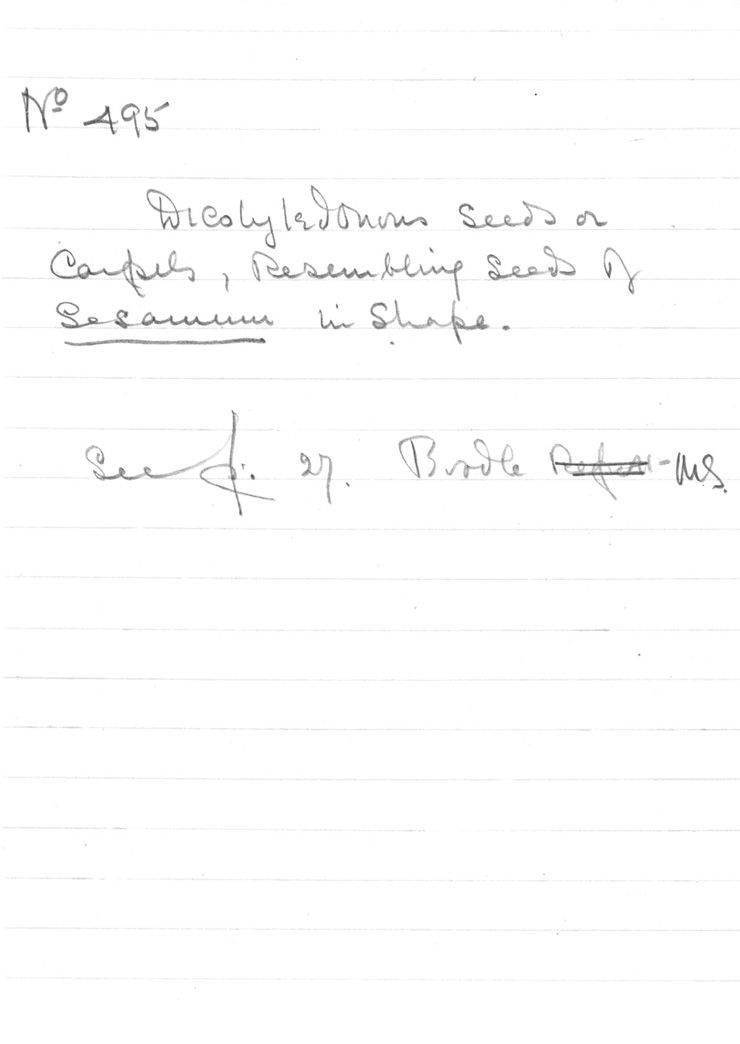 Nº 495
Dicotyledonous Seeds or
Carpels, Resembling Seeds of
Sesamum in Shape.
See p. 27. Boodle Report - MS.